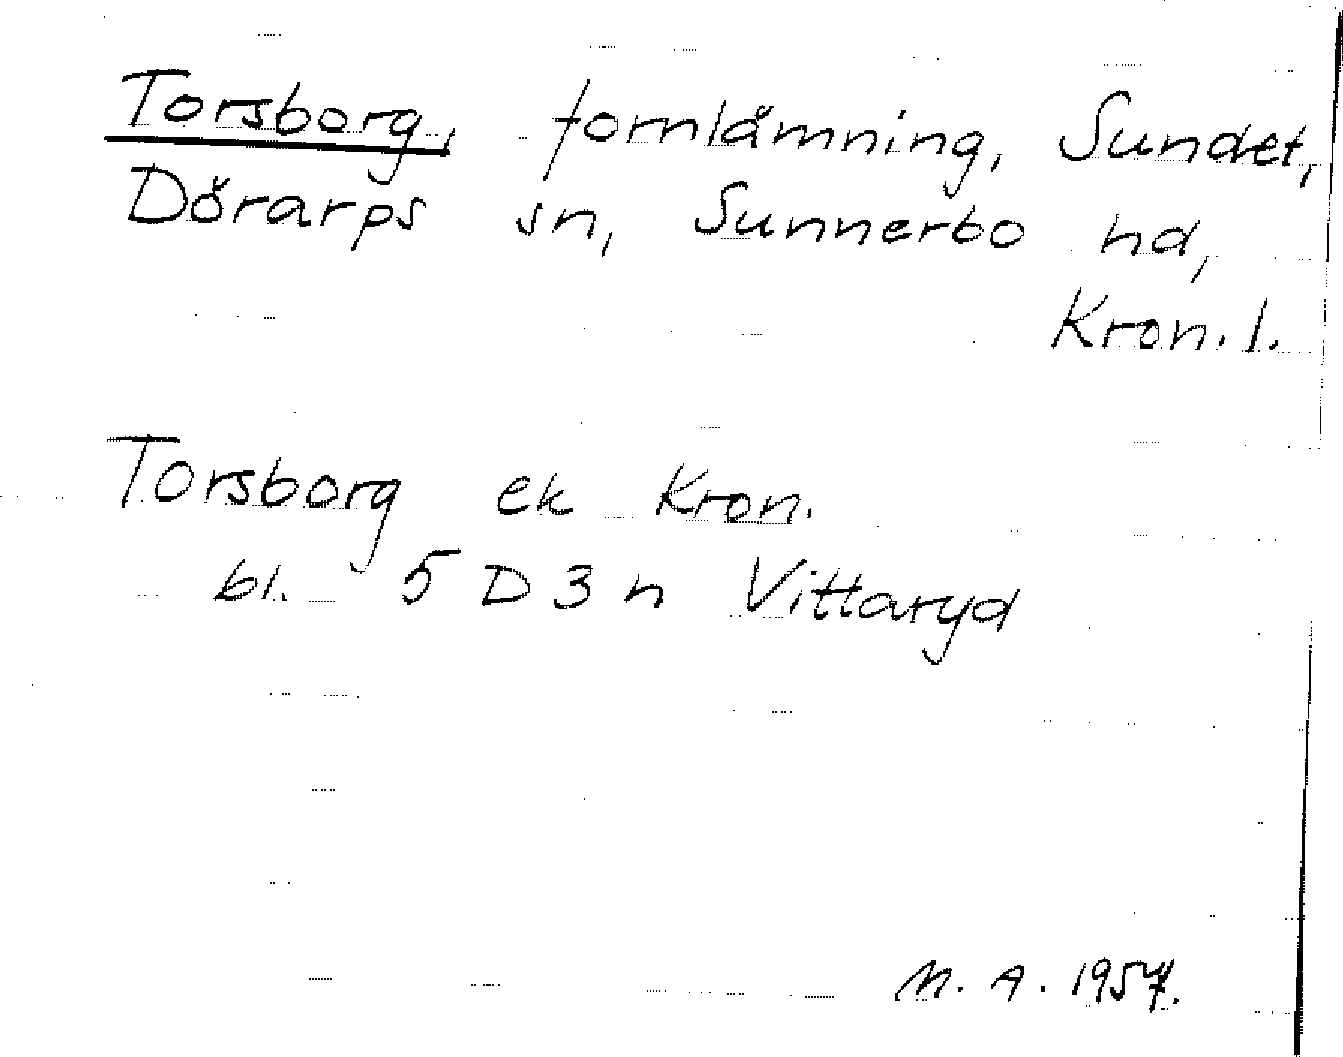 Torsborg, fornlämning, Sundet,
Dörarps sn, Sunnerbo hd,
Kron. l.
Torsborg ek Kron.
bl. 5 D 3 n Vittaryd
M. A. 1957.